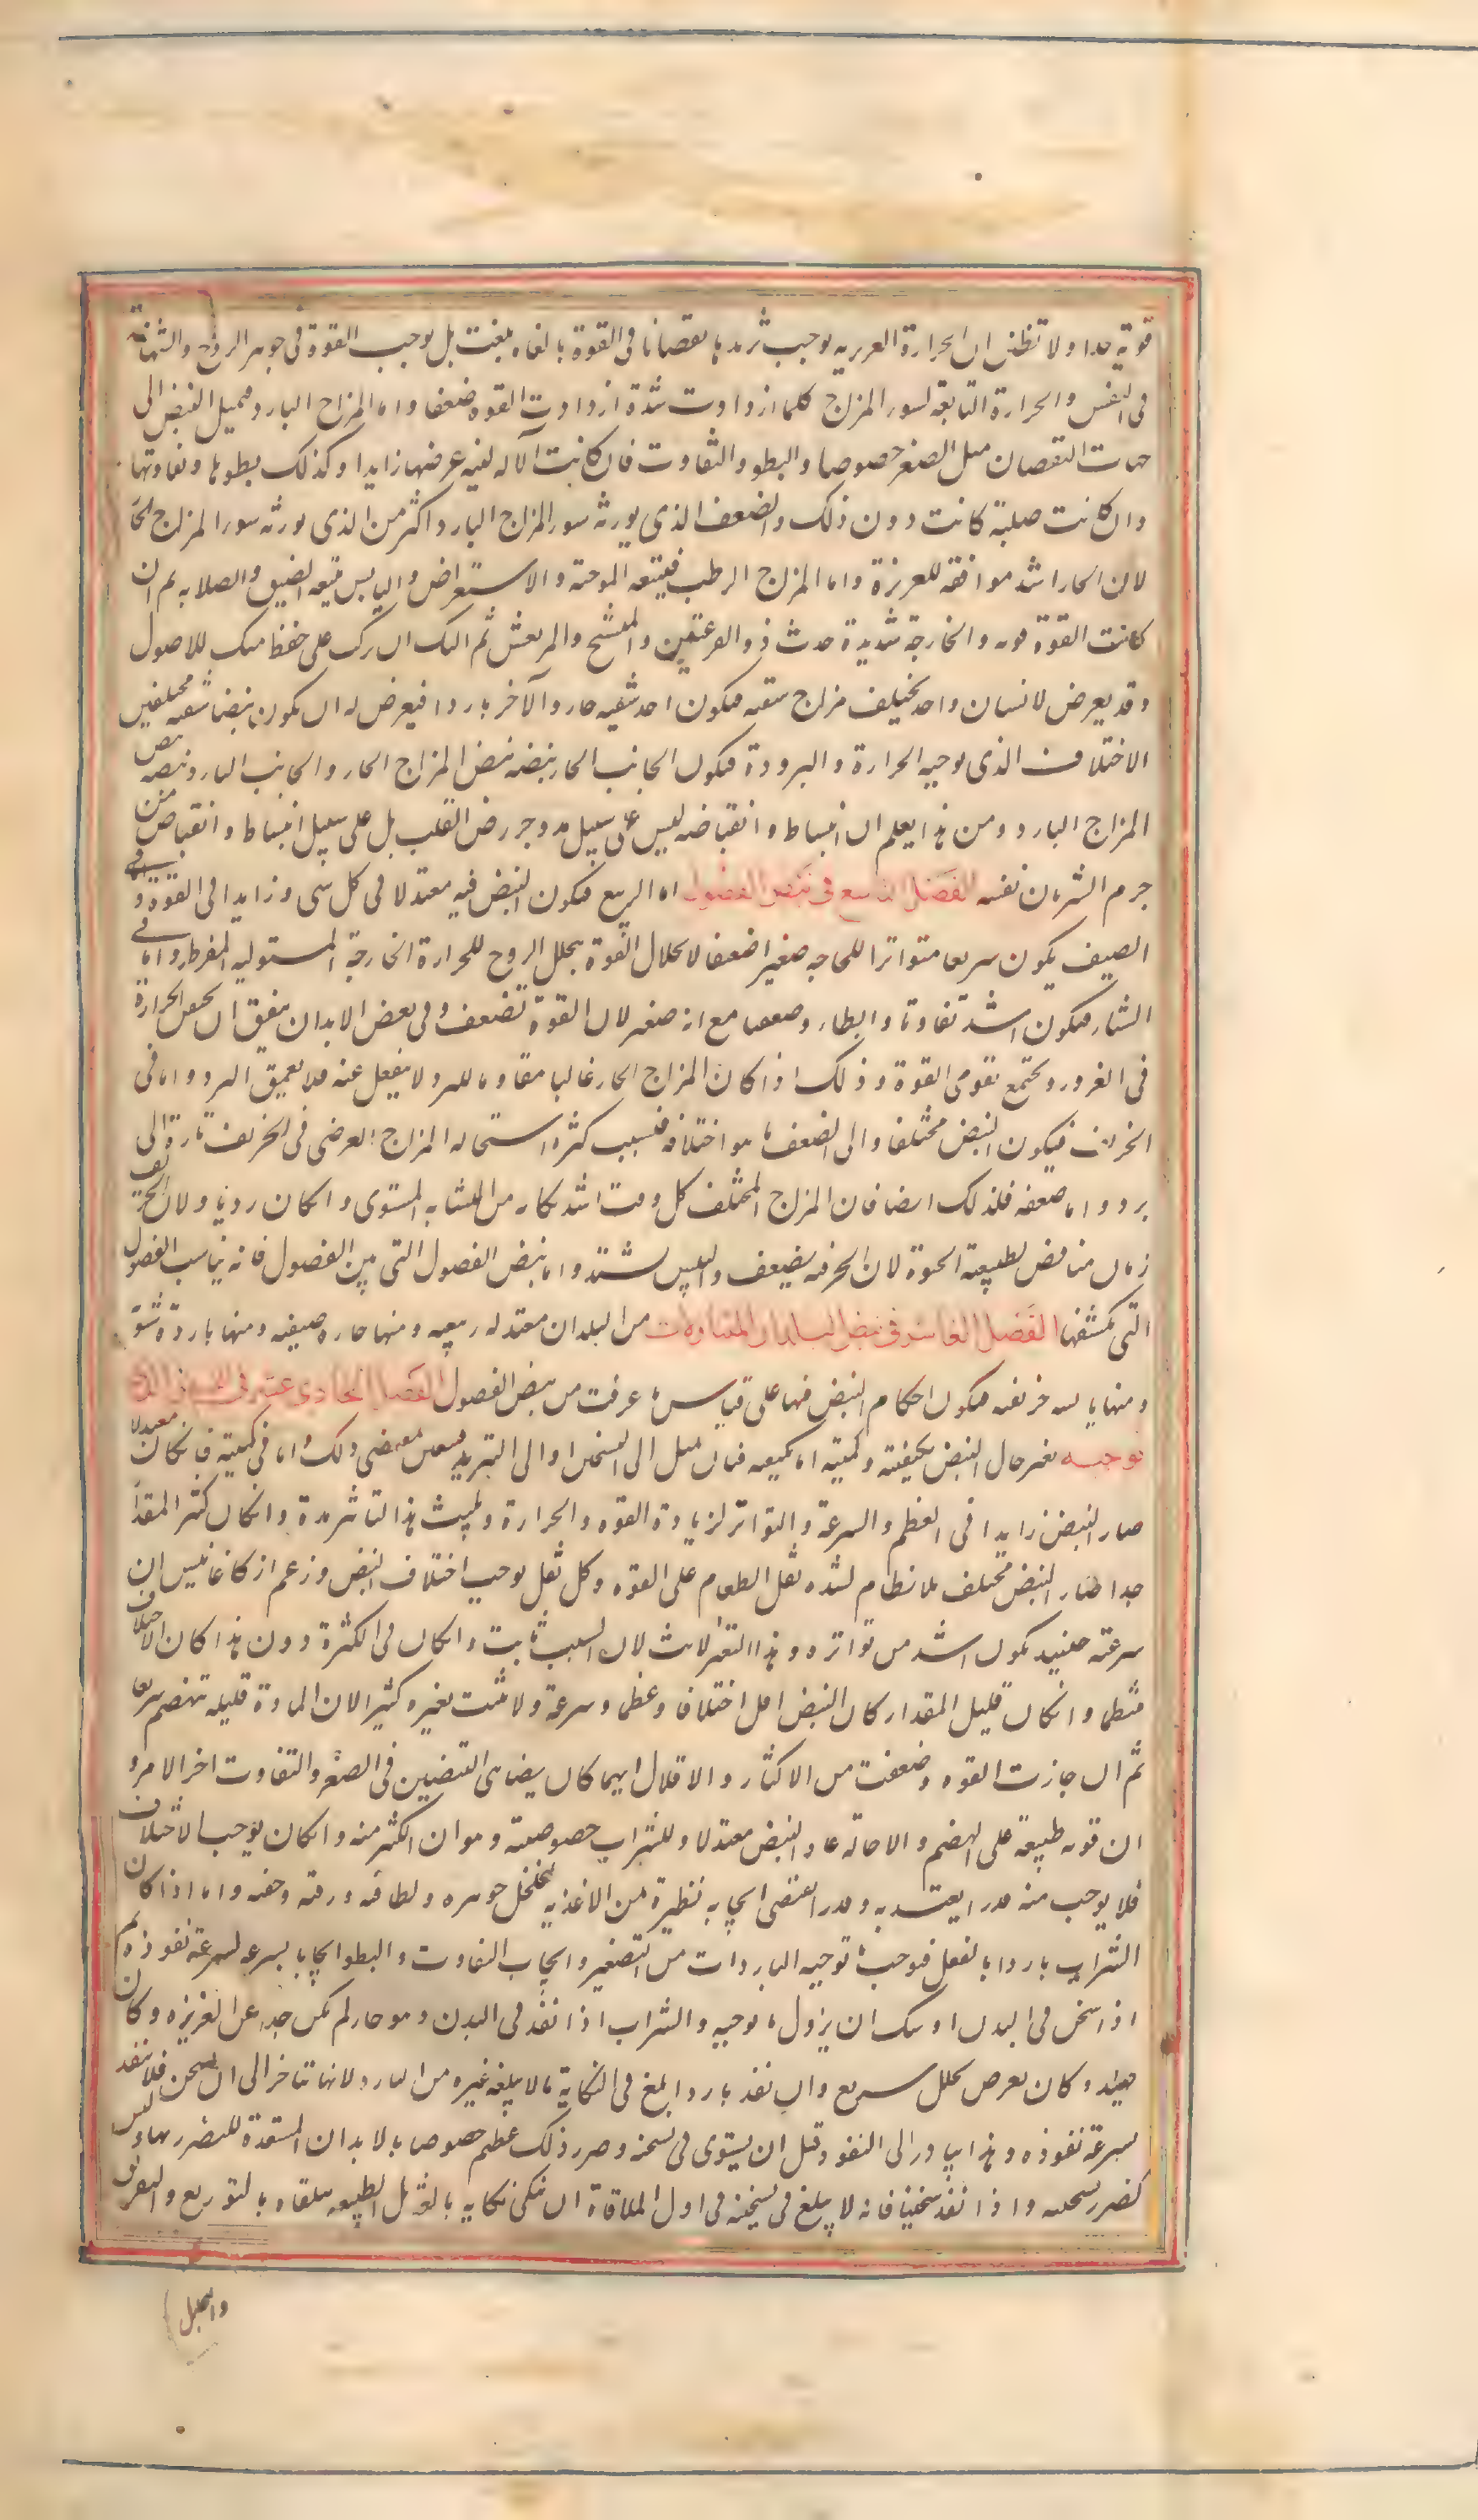 قوية جدا ولا تظنن ان الحرارة الغريزيه يوجب تزيدها نقصانا فى القوة بالغاه بلغت بل توجب القوة فى جوهر الروح والشهامة
فى النفس والحرارة التابعة لسوء المزاج كلما ازدادت شدة ازدادت القوه ضعفا واما المزاج البارد فيميل النبض الى
جهات النقصان مثل الصغر خصوصا والبطو والتفاوت فان كانت الآله لينه عرضها زايدا وكذلك بطوها وتفاوتها
وان كانت صلبة كانت دون ذلك والضعف الذى يورثه سوء المزاج البارد اكثر من الذى يورثه سوء المزاج الحا
لان الحار اشد موافقة للغريزة واما المزاج الرطب فيتبعه الموجية والاستعراض واليابس يتبعه الضيق والصلابه ثم ان
كانت القوة قويه والحاجة شديدة حدث ذو القرعتين والمتشنج والمرتعش ثم اليك ان تركب على حفظ منك للاصول
وقد يعرض لانسان واحد يختلف مزاج شقيه فيكون احد شقيه حار والآخر باردا فيعرض له ان يكون نبضا شقيه مختلفين
الاختلاف الذى توجبه الحرارة والبرودة فيكون الجانب الحار نبضه نبض المزاج الحار والجانب البارد نبضه نبض
المزاج البارد ومن هذا يعلم ان انبساطه وانقباضه ليس على سبيل مد وجزر من القلب بل على سبيل انبساط وانقباض من
جرم الشريان نفسه الفصل التاسع فى نبض الفصول اما الربيع فيكون النبض فيه معتدلا فى كل شى وزايدا فى القوة وفى
الصيف يكون سريعا متواترا للحاجه صغيرا ضعيفا لانحلال القوة بتحلل الروح للحرارة الخارجة المستوليه المفرطه واما فى
الشتاء فيكون اشد تفاوتا وابطاء وضعفا مع انه صغير لان القوة تضعف وفى بعض الابدان يتفق ان يحقن الحرارة
فى الغور وتجتمع تقوى القوة وذلك اذا كان المزاج الحار غالبا مقاوما للبرد لا ينفعل عنه فلا يعمق البرد واما فى
الخريف فيكون النبض مختلفا والى الضعف ما هو اختلافه فبسبب كثرة استحاله المزاج العرضى فى الخريف تارة الى
برد واما ضعفه فلذلك ايضا فان المزاج المختلف كل وقت اشد نكايه من المتشابه المستوى وان كان رديا ولان الخريف
زمان مناقض لطبيعة الحيوة لان الحر فيه يضعف واليبس يشتد واما نبض الفصول التى بين الفصول فانه يناسب الفصول
التى تكتنفها الفصل العاشر فى نبض البلدان المتناولات من البلدان معتدله ربيعيه ومنها حاره صيفيه ومنها باردة شتو
ومنها يابسه خريفيه فيكون احكام النبض فيها على قياس ما عرفت من نبض الفصول الفصل الحادى عشر فى النبض الذى
توجبه يغير حال النبض بكيفيته وكميته اما بكيفيته فبان يميل الى التسخين او الى التبريد فيتغير بمقتضى ذلك واما فى كميته فان كان معتدلا
صار النبض زايدا فى العظم والسرعة والتواتر لزيادة القوه والحرارة ويلبث هذا التاثير مدة وان كان كثير المقدا
جدا صار النبض مختلف بلا نظام لشده ثقل الطعام على القوه وكل ثقل يوجب اختلاف النبض وزعم ازكاغانيس ان
سرعته حينيد يكون اشد من تواتره وهذا التغير لابث لان السبب ثابت وان كان فى الكثرة دون هذا كان الاختلاف
منتظما وان كان قليل المقدار كان النبض اقل اختلافا وعظما وسرعة ولا يثبت تغيره كثيرا لان المادة قليله تنهضم سريعا
ثم ان جازت القوه وضعفت من الاكثار والاقلال ايهما كان يضاهى النبضين فى الصغر والتفاوت اخر الامر و
ان قويه طبيعة على الهضم والاحالة عاد النبض معتدلا وللشراب خصوصية وهو ان الكثير منه وان كان يوجب الاختلاف
فلا يوجب منه قدرا يعتد به وقدرا يقتضى ايجابه نظيره من الاغذيه لتخلخل جوهره ولطافته ورقته وخفته واما اذا كان
الشراب باردا بالفعل فيوجب ما توجبه الباردات من التصغير وايجاب التفاوت والبطو ايجابا بسرعه لسرعة نفوذه ثم
اذا سخن فى البدن اوشك ان يزول ما يوجبه والشراب اذا نفذ فى البدن وهو حار لم يكن بعيدا عن الغريزه وكان
حينيد وكان بعرض تحلل سريع وان نفذ باردا بلغ فى النكاية ما لا يبلغه غيره من البارد لانها تتاخر الى ان تسخن فلا تنفذ
بسرعة نفوذه وهذا يبادر الى النفوذ قبل ان يستوى فى تسخنه وضرر ذلك عظيم خصوصا بالابدان المستعدة للتضرر بها وليس
كضرر تسخينه واذا نفذ سخينا فانه لا يبلغ فى تسخينه فى اول الملاقاة ان ينكى نكايه بالغة بل الطبيعه تتلقاه بالتوزيع والتفريق
والتحليل